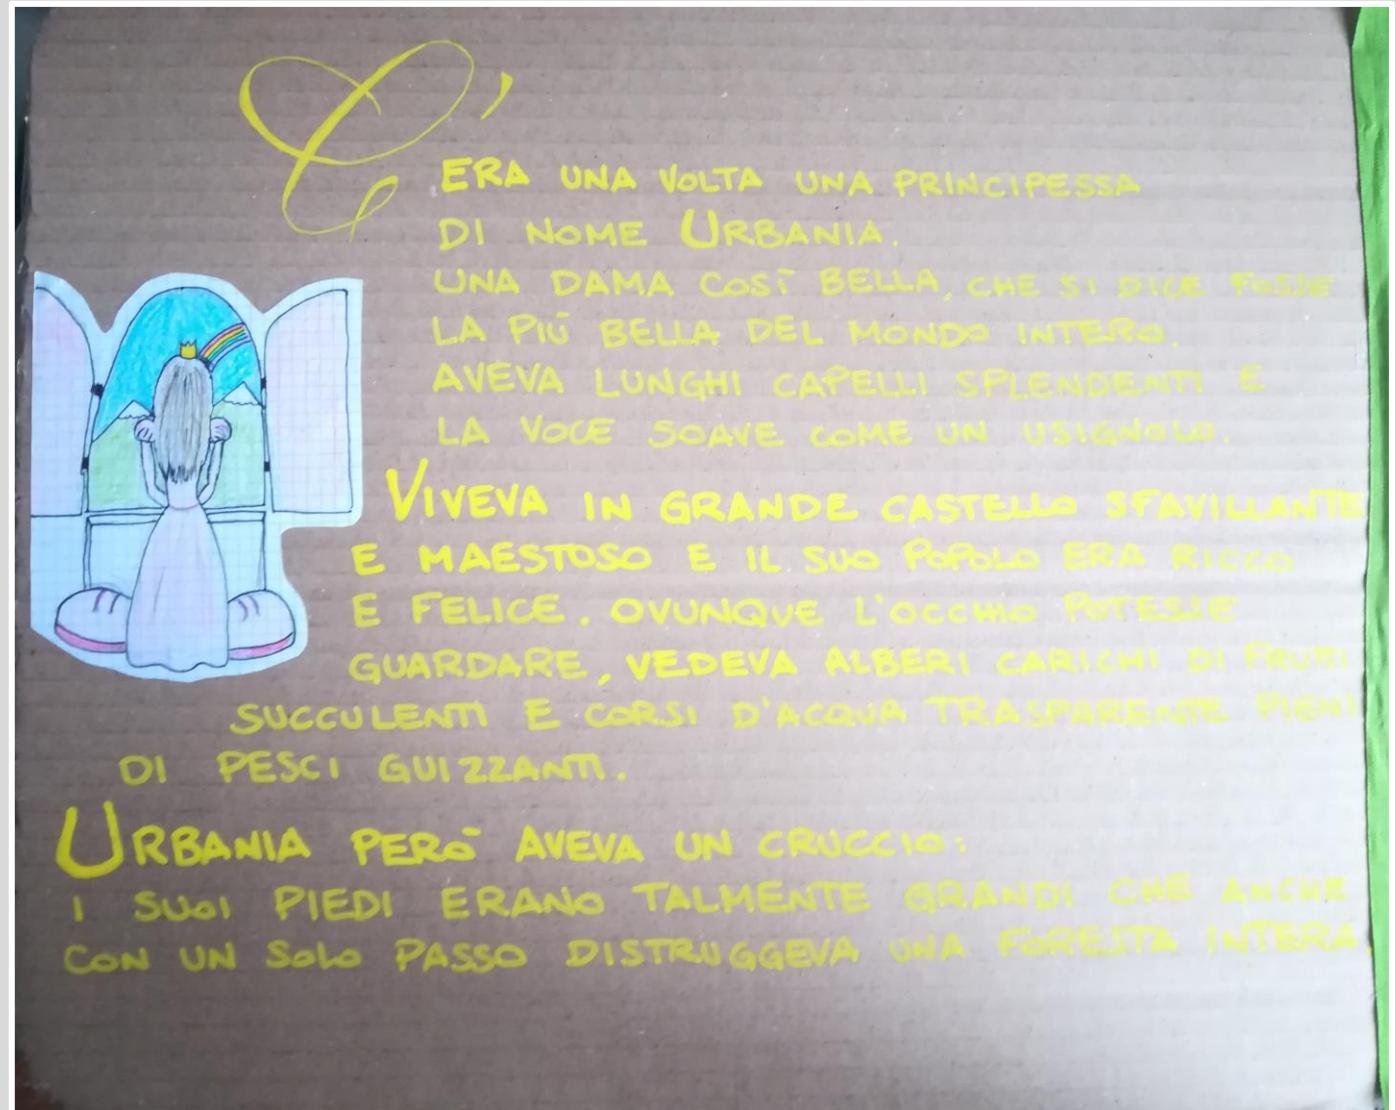 C'ERA UNA VOLTA UNA PRINCIPESSA
DI NOME URBANIA.
UNA DAMA COSÌ BELLA, CHE SI DICE FOSSE
LA PIÙ BELLA DEL MONDO INTERO.
AVEVA LUNGHI CAPELLI SPLENDENTI E
LA VOCE SOAVE COME UN USIGNOLO.
VIVEVA IN GRANDE CASTELLO SFAVILLANTE
E MAESTOSO E IL SUO POPOLO ERA RICCO
E FELICE. OVUNQUE L'OCCHIO POTESSE
GUARDARE, VEDEVA ALBERI CARICHI DI FRUTTI
SUCCULENTI E CORSI D'ACQUA TRASPARENTE PIENI
DI PESCI GUIZZANTI.
URBANIA PERÒ AVEVA UN CRUCCIO:
I SUOI PIEDI ERANO TALMENTE GRANDI CHE ANCHE
CON UN SOLO PASSO DISTRUGGEVA UNA FORESTA INTERA.